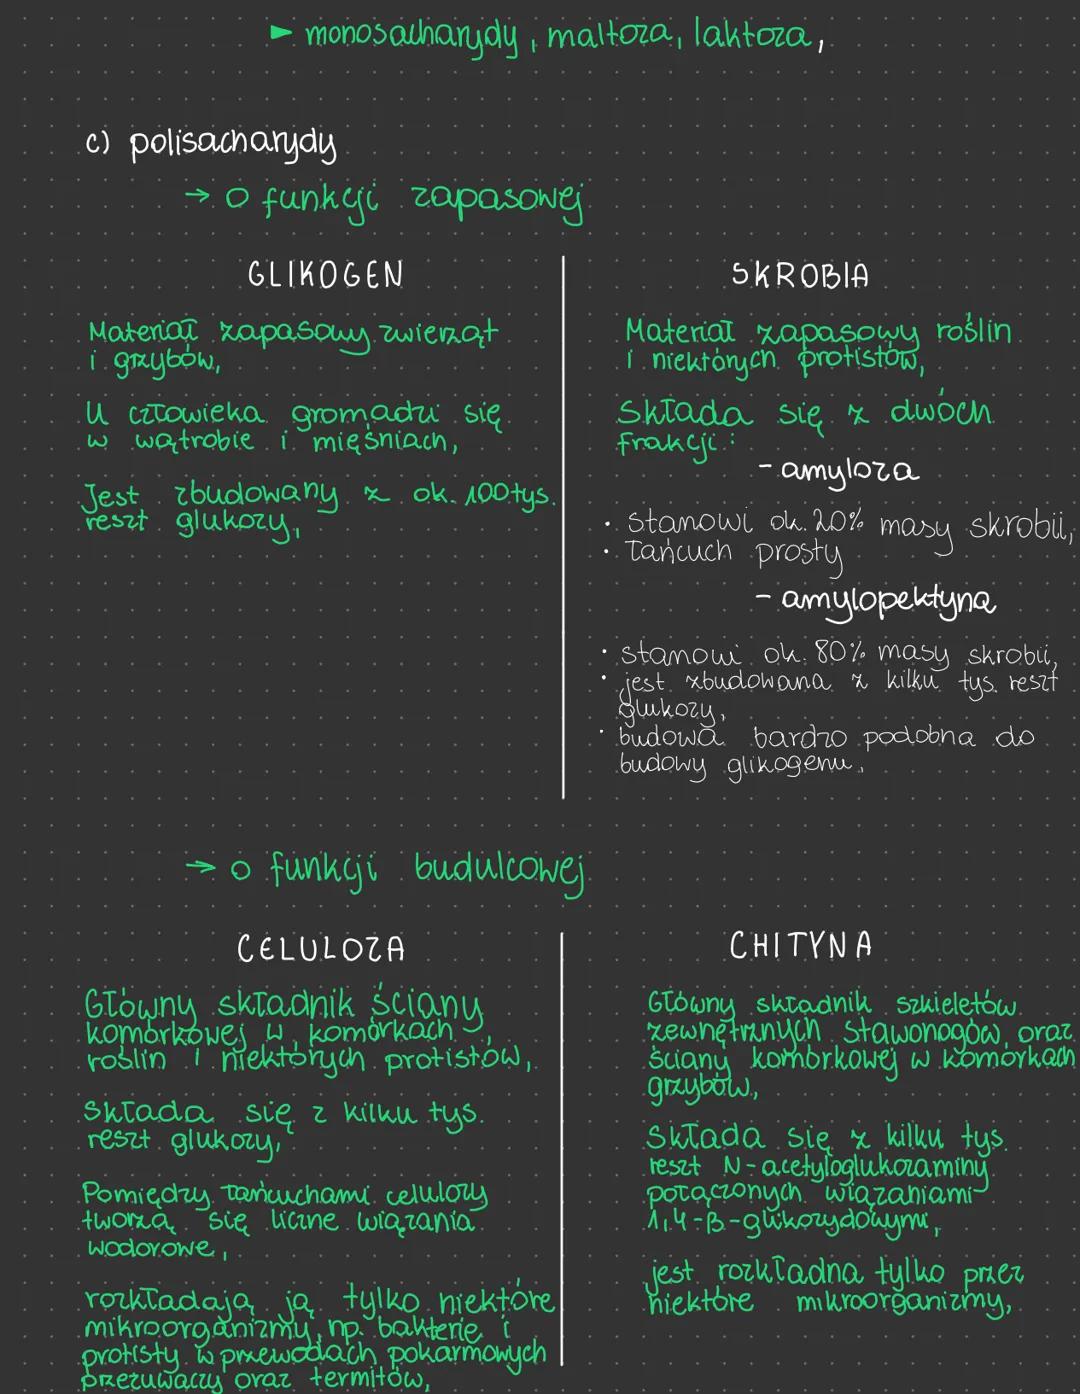 ► monosacharydy, maltoza, laktoza,
c) polisacharydy
→ o funkcji zapasowej
GLIKOGEN
Materiał zapasowy zwierząt
i grzybów,
U człowieka gromadzi się
w wątrobie i mięśniach,
Jest zbudowany z ok. 100tys.
reszt glukozy,
SKROBIA
Materiał zapasowy roślin
i niektórych protistów,
Składa się z dwóch
frakcji:
- amyloza
· stanowi ok. 20% masy skrobii,
· łańcuch prosty
- amylopektyna
· stanowi ok. 80% masy skrobii,
· jest zbudowana z kilku tys. reszt
glukozy,
· budowa bardzo podobna do
budowy glikogenu,
→ o funkcji budulcowej
CELULOZA
Główny składnik ściany
komórkowej w komórkach
roślin i niektórych protistów,
składa się z kilku tys.
reszt glukozy,
Pomiędzy łańcuchami celulozy
tworzą się liczne wiązania
wodorowe,
rozkładają ją tylko niektóre
mikroorganizmy, np. bakterie i
protisty w przewodach pokarmowych
przeżuwaczy oraz termitów,
CHITYNA
Główny składnik szkieletów
zewnętrznych stawonogów oraz
ściany komórkowej w komórkach
grzybów,
Składa się z kilku tys.
reszt N-acetyloglukozaminy
połączonych wiązaniami
1,4-β-glikozydowymi,
jest rozkładna tylko przez
niektóre mikroorganizmy,